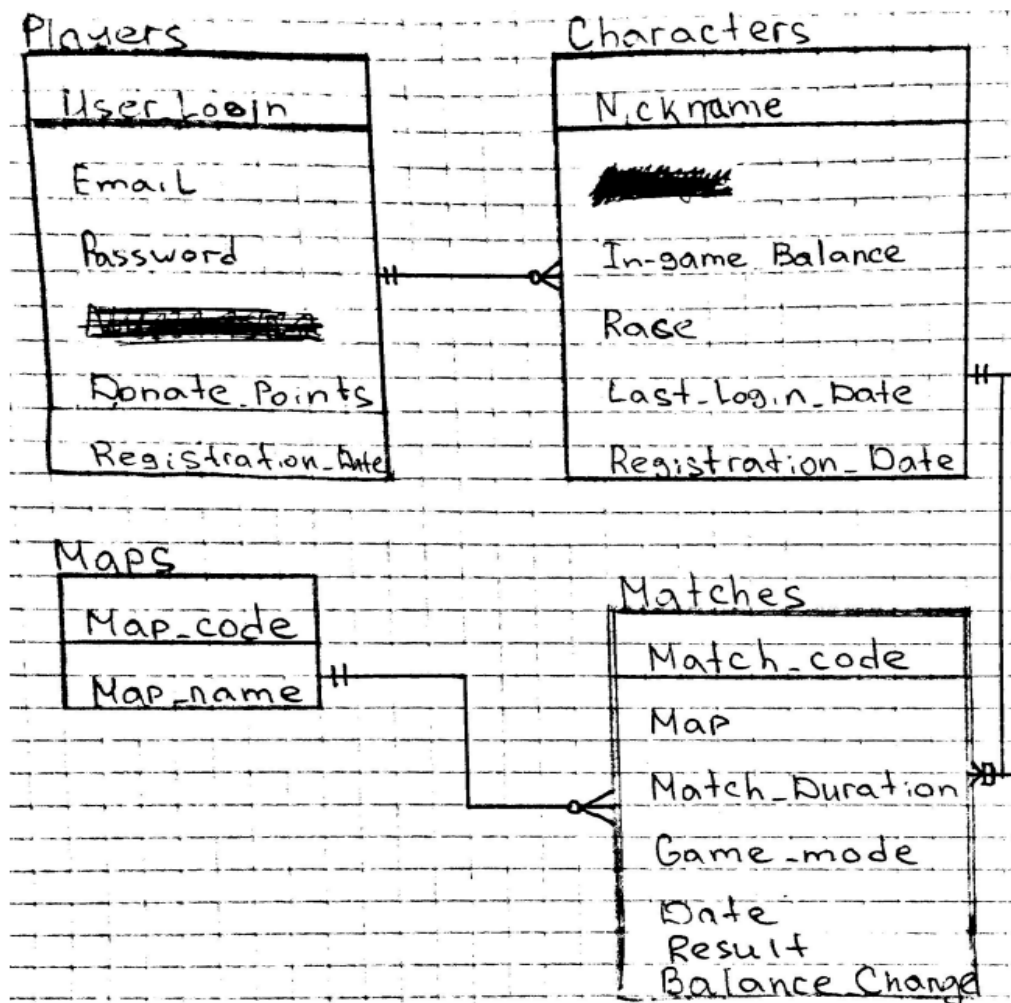 Players
User_Login
Email
Password
Donate_Points
Registration_Date
Characters
Nickname
In-game Balance
Rase
Last_login_Date
Registration_Date
Maps
Map_code
Map_name
Matches
Match_code
Map
Match_Duration
Game_mode
Date
Result
Balance_Change